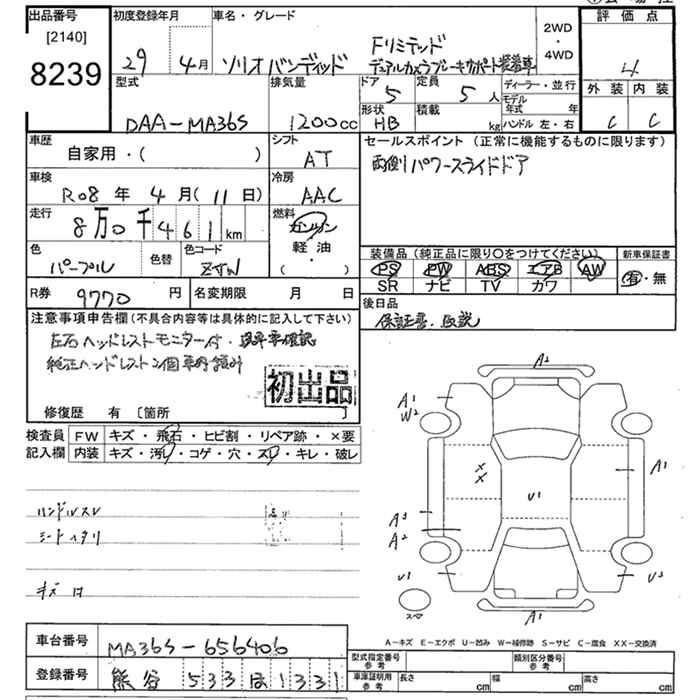 出品番号
[2140]
8239
初度登録年月
29 4月
車名・グレード
ソリオバンディッド
Fリミテッド
デュアルカメラブレーキサポート装着車
2WD
・
4WD
評価点
4
外装 内装
C C
型式
DAA-MA36S
排気量
1200cc
ドア
5
定員
5人
形状
HB
積載
kg
ディーラー・並行
モデル
年式 年
ハンドル 左・右
車歴
自家用・( )
シフト
AT
セールスポイント(正常に機能するものに限ります)
両側パワースライドドア
車検
R08年 4月(11日)
冷房
AAC
走行
8万0千461km
燃料
ガソリン
軽油
( )
色
パープル
色替
色コード
装備品(純正品に限り○をつけてください)
PS PW ABS エアB AW
SR ナビ TV カワ
新車保証書
有・無
R券
9770円
名変期限 月 日
後日品
保証書・取説
注意事項申告欄(不具合内容等は具体的に記入して下さい)
左右ヘッドレストモニター付・
純正ヘッドレスト2個車内積み
初出品
修復歴 有 〔箇所 〕
検査員
記入欄
FW キズ・飛石・ヒビ割・リペア跡・×要
内装 キズ・汚レ・コゲ・穴・スレ・キレ・破レ
ハンドルスレ
シートヘタリ
A2
A1
W2
A1
XX
U1
A3
A2
U1
U3
スペア
A1
A-キズ E-エクボ U-凹み W-補修跡 S-サビ C-腐食 XX-交換済
車台番号
MA36S-656406
登録番号
熊谷 533 ほ 1331
型式指定番号
参考
類別区分番号
参考
車庫証明用
参考
長さ cm
幅 cm
高さ cm